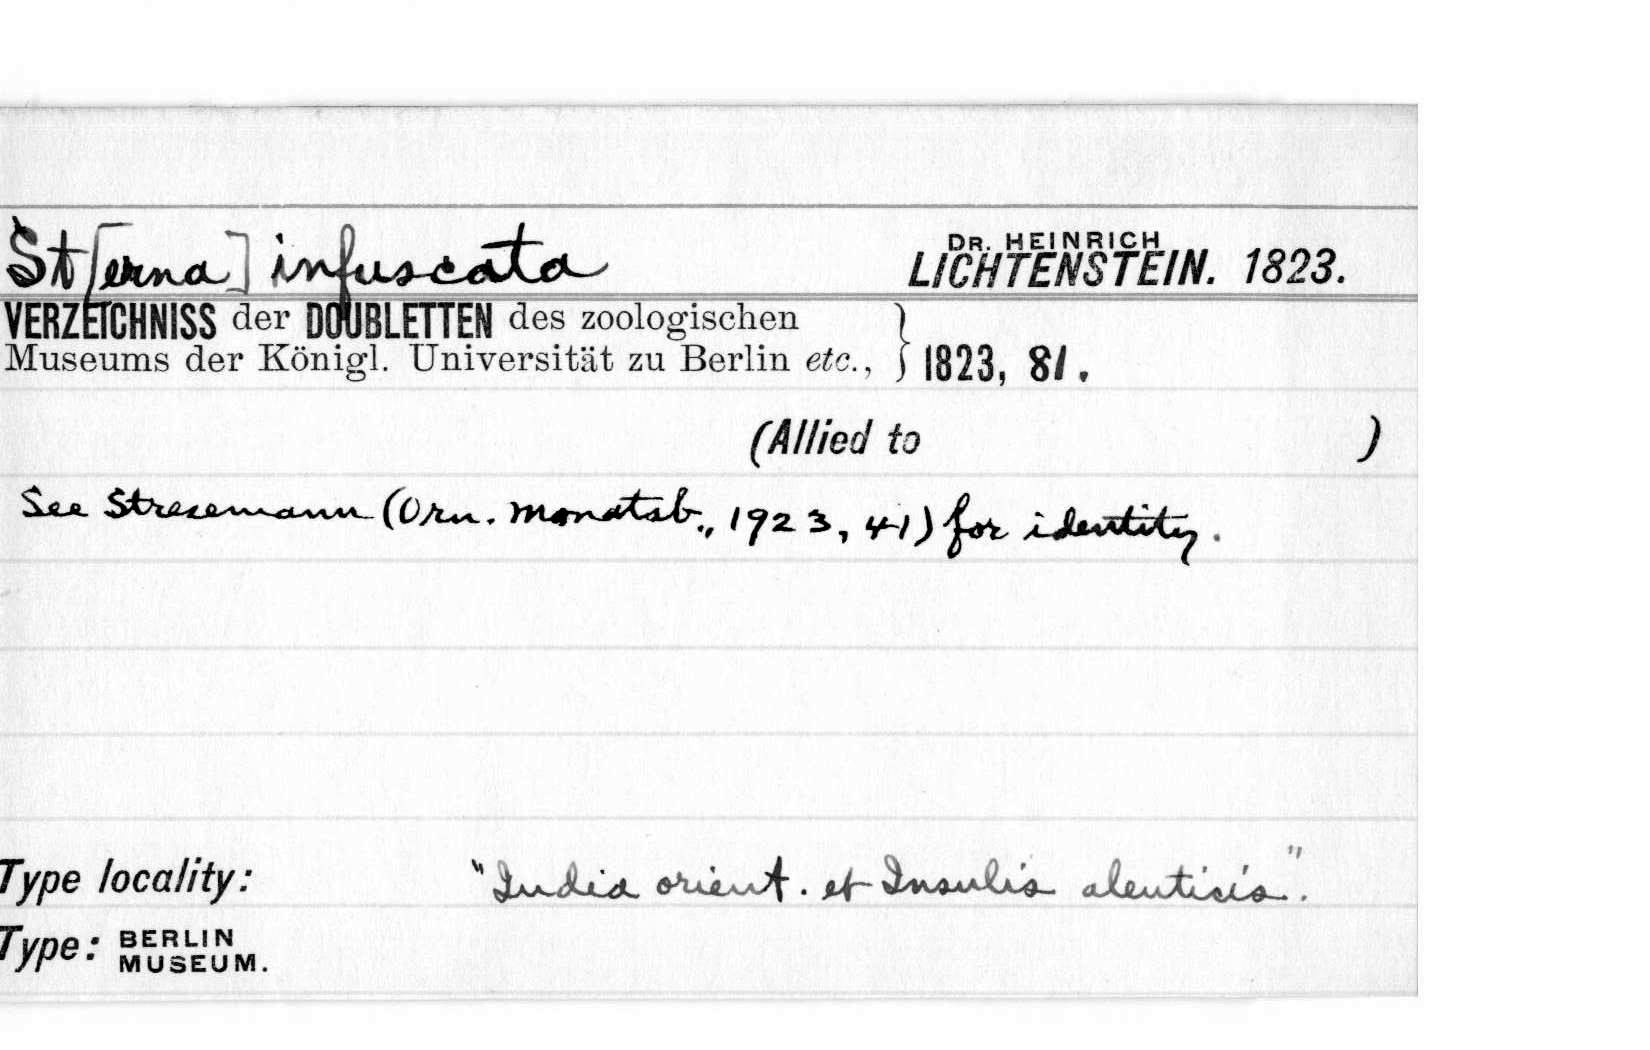 St[erna] infuscata
DR. HEINRICH
LICHTENSTEIN. 1823.
VERZEICHNISS der DOUBLETTEN des zoologischen
Museums der Königl. Universität zu Berlin etc., } 1823, 81.
(Allied to )
See Stresemann (Orn. Monatsb., 1923, 41) for identity.
Type locality: "India orient. et Insulis aleuticis".
Type: BERLIN
MUSEUM.